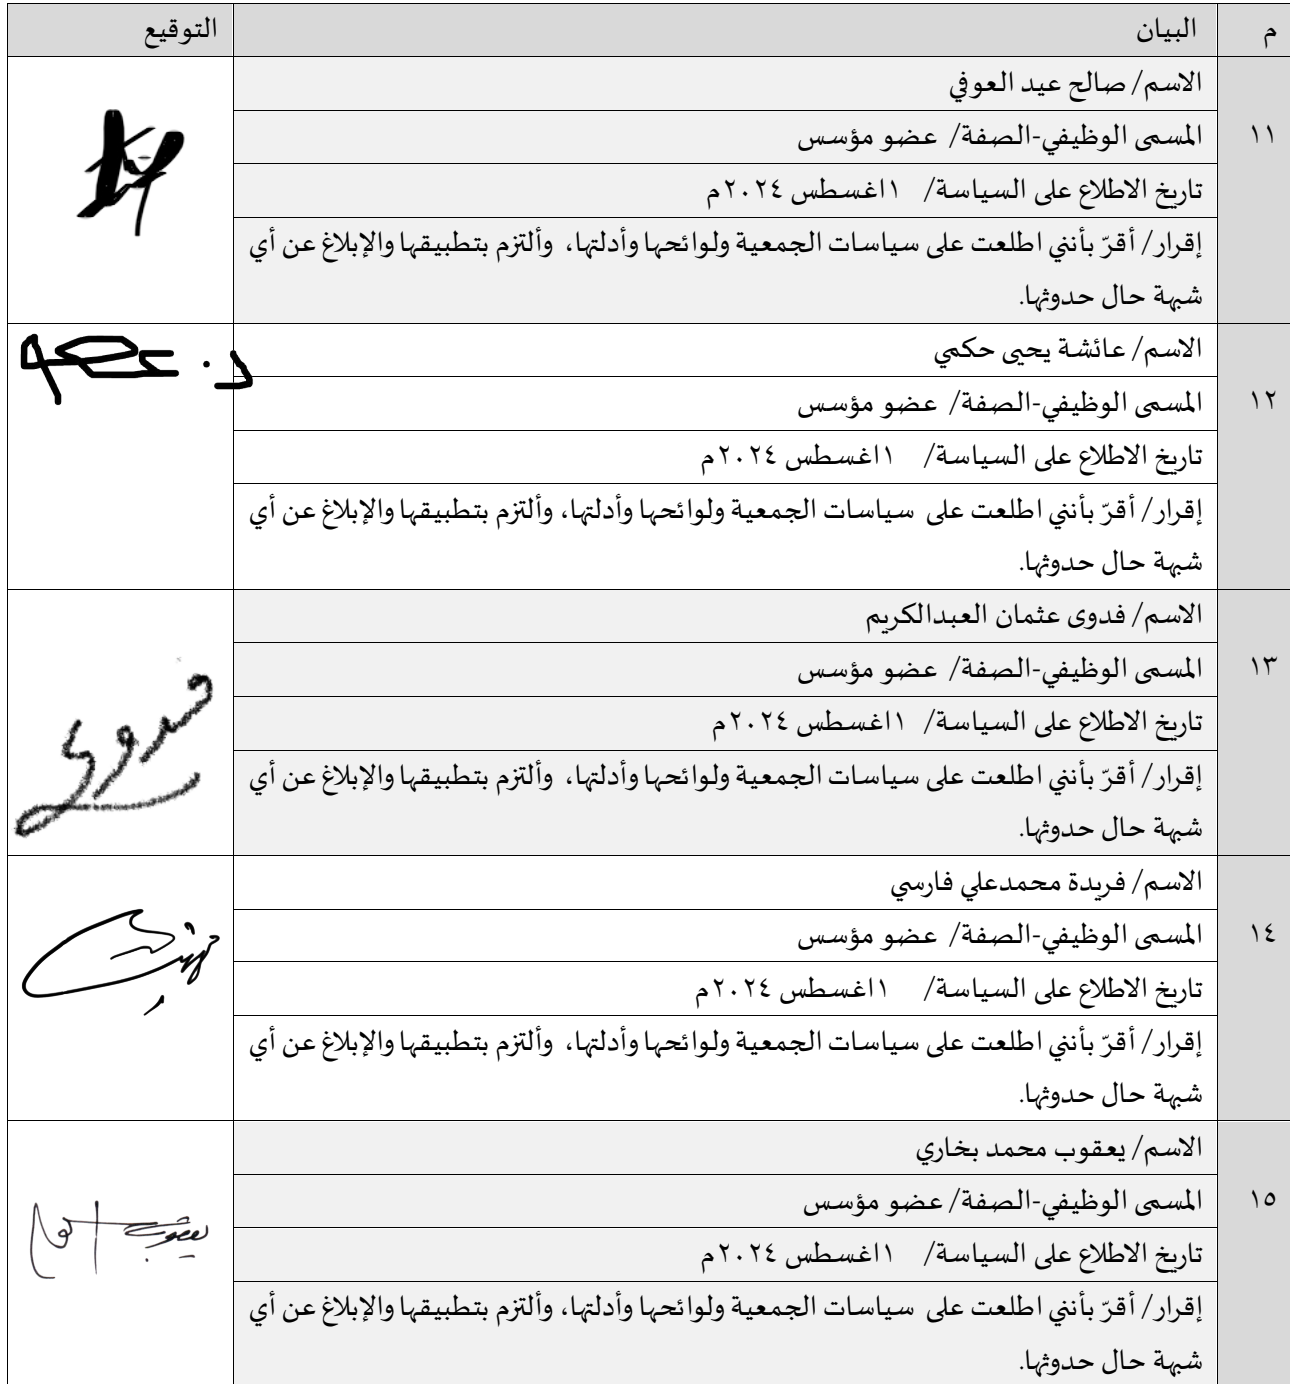 م البيان التوقيع
الاسم/ صالح عيد العوفي
١١ المسمى الوظيفي-الصفة/ عضو مؤسس
تاريخ الاطلاع على السياسة/ ١اغسطس ٢٠٢٤م
إقرار/ أقرّ بأنني اطلعت على سياسات الجمعية ولوائحها وأدلتها، وألتزم بتطبيقها والإبلاغ عن أي
شبهة حال حدوثها.
الاسم/ عائشة يحيى حكمي
١٢ المسمى الوظيفي-الصفة/ عضو مؤسس
تاريخ الاطلاع على السياسة/ ١اغسطس ٢٠٢٤م
إقرار/ أقرّ بأنني اطلعت على سياسات الجمعية ولوائحها وأدلتها، وألتزم بتطبيقها والإبلاغ عن أي
شبهة حال حدوثها.
الاسم/ فدوى عثمان العبدالكريم
١٣ المسمى الوظيفي-الصفة/ عضو مؤسس
فدوى
تاريخ الاطلاع على السياسة/ ١اغسطس ٢٠٢٤م
إقرار/ أقرّ بأنني اطلعت على سياسات الجمعية ولوائحها وأدلتها، وألتزم بتطبيقها والإبلاغ عن أي
شبهة حال حدوثها.
الاسم/ فريدة محمدعلي فارسي
١٤ المسمى الوظيفي-الصفة/ عضو مؤسس
تاريخ الاطلاع على السياسة/ ١اغسطس ٢٠٢٤م
إقرار/ أقرّ بأنني اطلعت على سياسات الجمعية ولوائحها وأدلتها، وألتزم بتطبيقها والإبلاغ عن أي
شبهة حال حدوثها.
الاسم/ يعقوب محمد بخاري
١٥ المسمى الوظيفي-الصفة/ عضو مؤسس
يعقوب
تاريخ الاطلاع على السياسة/ ١اغسطس ٢٠٢٤م
إقرار/ أقرّ بأنني اطلعت على سياسات الجمعية ولوائحها وأدلتها، وألتزم بتطبيقها والإبلاغ عن أي
شبهة حال حدوثها.